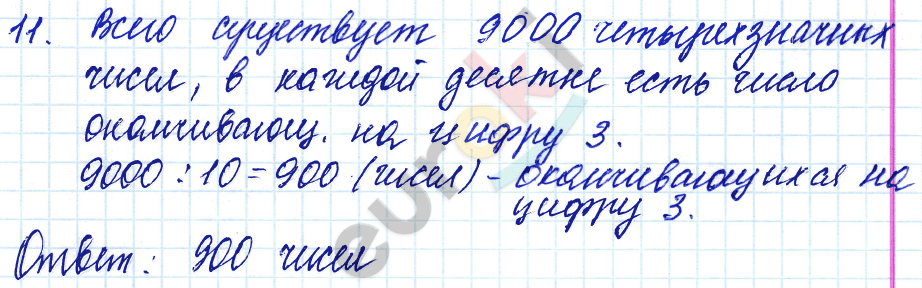 11. Всего существует 9000 четырехзначных
чисел, в каждой десятке есть число
оканчивающ. на цифру 3.
9000 : 10 = 900 (чисел) - оканчивающихся на
цифру 3.
Ответ: 900 чисел
euroki